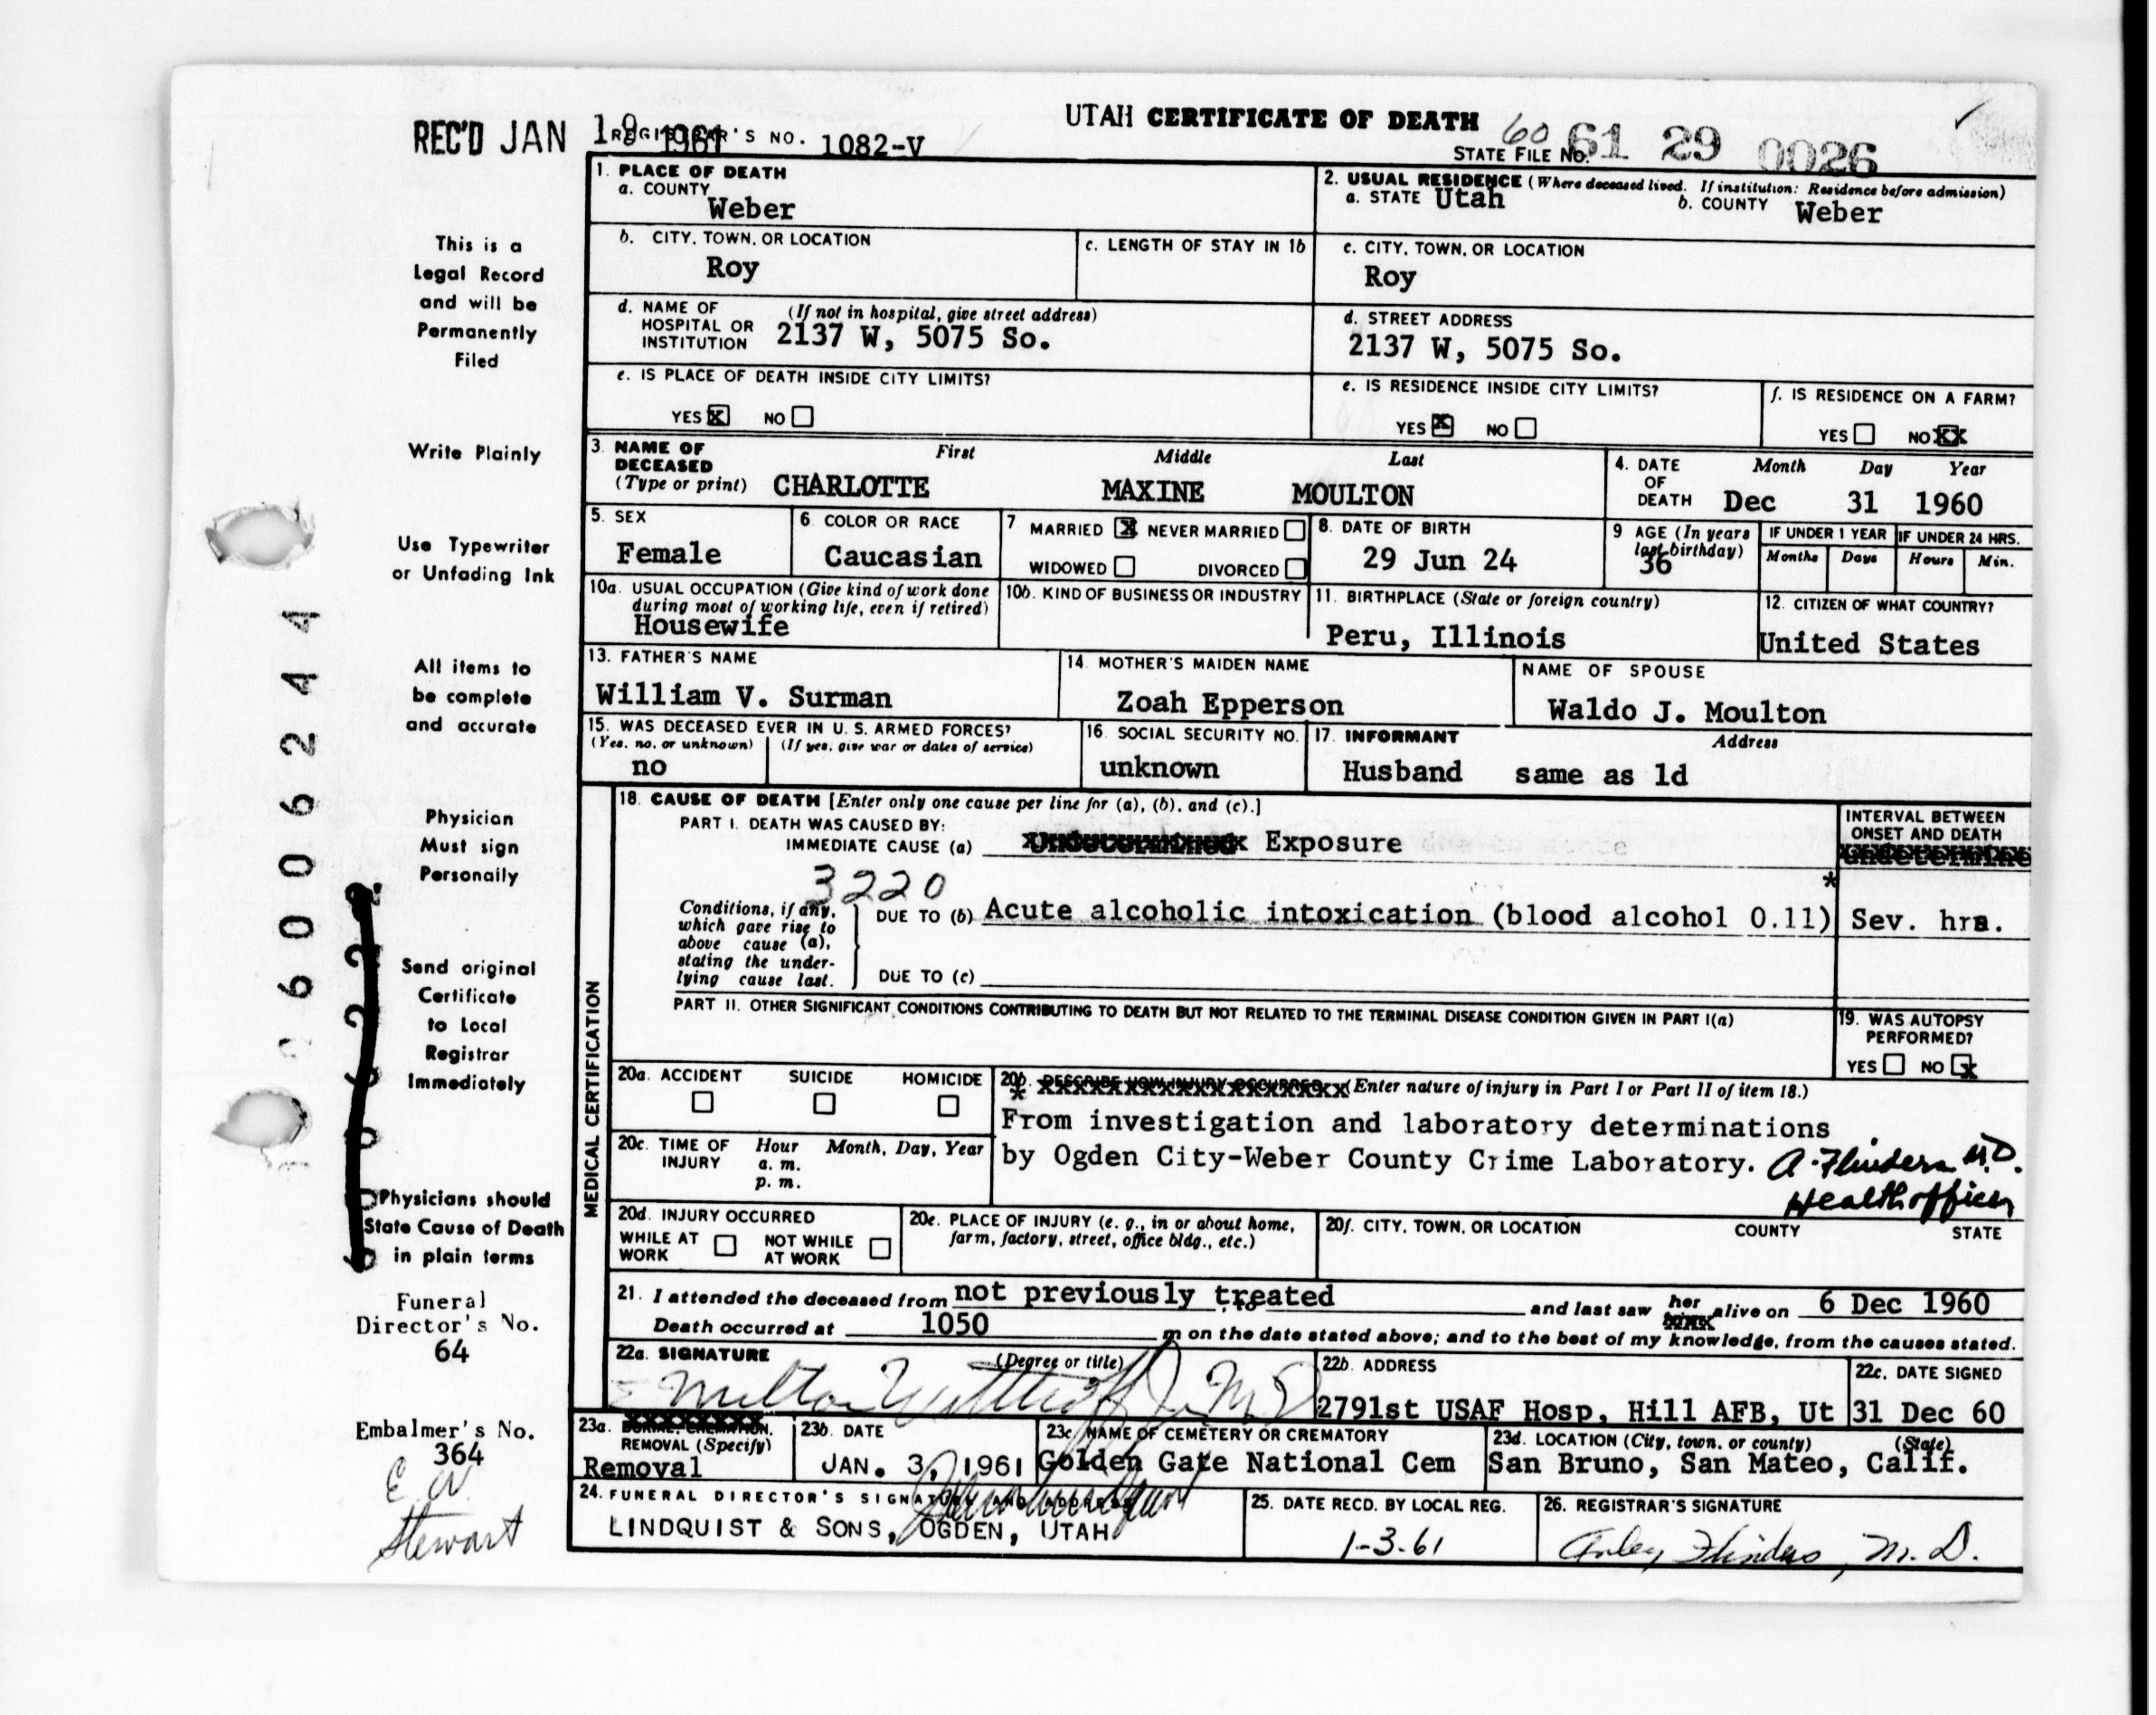 UTAH CERTIFICATE OF DEATH
REC'D JAN 1961
REGISTRAR'S NO. 1082-V
60
STATE FILE No. 61 29 0026
1. PLACE OF DEATH
a. COUNTY
Weber
2. USUAL RESIDENCE (Where deceased lived. If institution: Residence before admission)
a. STATE Utah
b. COUNTY Weber
b. CITY, TOWN, OR LOCATION
Roy
c. LENGTH OF STAY IN 1b
c. CITY, TOWN, OR LOCATION
Roy
d. NAME OF HOSPITAL OR INSTITUTION
(If not in hospital, give street address)
2137 W, 5075 So.
d. STREET ADDRESS
2137 W, 5075 So.
e. IS PLACE OF DEATH INSIDE CITY LIMITS?
YES X NO
e. IS RESIDENCE INSIDE CITY LIMITS?
YES X NO
f. IS RESIDENCE ON A FARM?
YES NO XX
3. NAME OF DECEASED (Type or print)
First Middle Last
CHARLOTTE MAXINE MOULTON
4. DATE OF DEATH
Month Day Year
Dec 31 1960
5. SEX
Female
6. COLOR OR RACE
Caucasian
7 MARRIED X NEVER MARRIED
WIDOWED DIVORCED
8. DATE OF BIRTH
29 Jun 24
9 AGE (In years last birthday)
36
IF UNDER 1 YEAR
Months Days
IF UNDER 24 HRS.
Hours Min.
10a. USUAL OCCUPATION (Give kind of work done during most of working life, even if retired)
Housewife
10b. KIND OF BUSINESS OR INDUSTRY
11. BIRTHPLACE (State or foreign country)
Peru, Illinois
12. CITIZEN OF WHAT COUNTRY?
United States
13. FATHER'S NAME
William V. Surman
14. MOTHER'S MAIDEN NAME
Zoah Epperson
NAME OF SPOUSE
Waldo J. Moulton
15. WAS DECEASED EVER IN U. S. ARMED FORCES?
(Yes, no, or unknown) (If yes, give war or dates of service)
no
16. SOCIAL SECURITY NO.
unknown
17. INFORMANT Address
Husband same as 1d
MEDICAL CERTIFICATION
18. CAUSE OF DEATH [Enter only one cause per line for (a), (b), and (c).]
PART I. DEATH WAS CAUSED BY:
IMMEDIATE CAUSE (a) Exposure
INTERVAL BETWEEN ONSET AND DEATH
undetermine
3220
Conditions, if any, which gave rise to above cause (a), stating the underlying cause last.
*
DUE TO (b) Acute alcoholic intoxication (blood alcohol 0.11) Sev. hrs.
DUE TO (c)
PART II. OTHER SIGNIFICANT CONDITIONS CONTRIBUTING TO DEATH BUT NOT RELATED TO THE TERMINAL DISEASE CONDITION GIVEN IN PART I(a)
19. WAS AUTOPSY PERFORMED?
YES NO X
20a. ACCIDENT SUICIDE HOMICIDE
20b. DESCRIBE HOW INJURY OCCURRED (Enter nature of injury in Part I or Part II of item 18.)
*
From investigation and laboratory determinations
by Ogden City-Weber County Crime Laboratory. A. Flinders M.D.
Health officer
20c. TIME OF INJURY
Hour Month, Day, Year
a. m.
p. m.
20d. INJURY OCCURRED
WHILE AT WORK NOT WHILE AT WORK
20e. PLACE OF INJURY (e. g., in or about home, farm, factory, street, office bldg., etc.)
20f. CITY, TOWN, OR LOCATION COUNTY STATE
21. I attended the deceased from not previously treated, to and last saw her alive on 6 Dec 1960
Death occurred at 1050 m on the date stated above; and to the best of my knowledge, from the causes stated.
22a. SIGNATURE (Degree or title)
Milton Jr M D
22b. ADDRESS
2791st USAF Hosp, Hill AFB, Ut
22c. DATE SIGNED
31 Dec 60
23a. BURIAL, CREMATION, REMOVAL (Specify)
Removal
23b. DATE
JAN. 3, 1961
23c. NAME OF CEMETERY OR CREMATORY
Golden Gate National Cem
23d. LOCATION (City, town, or county) (State)
San Bruno, San Mateo, Calif.
24. FUNERAL DIRECTOR'S SIGNATURE AND ADDRESS
LINDQUIST & SONS, OGDEN, UTAH
25. DATE RECD. BY LOCAL REG.
1-3-61
26. REGISTRAR'S SIGNATURE
Arley Flinders, M. D.
This is a
Legal Record
and will be
Permanently
Filed
Write Plainly
Use Typewriter
or Unfading Ink
All items to
be complete
and accurate
Physician
Must sign
Personally
Send original
Certificate
to Local
Registrar
Immediately
Physicians should
State Cause of Death
in plain terms
Funeral
Director's No.
64
Embalmer's No.
364
E W
Stewart
6006244